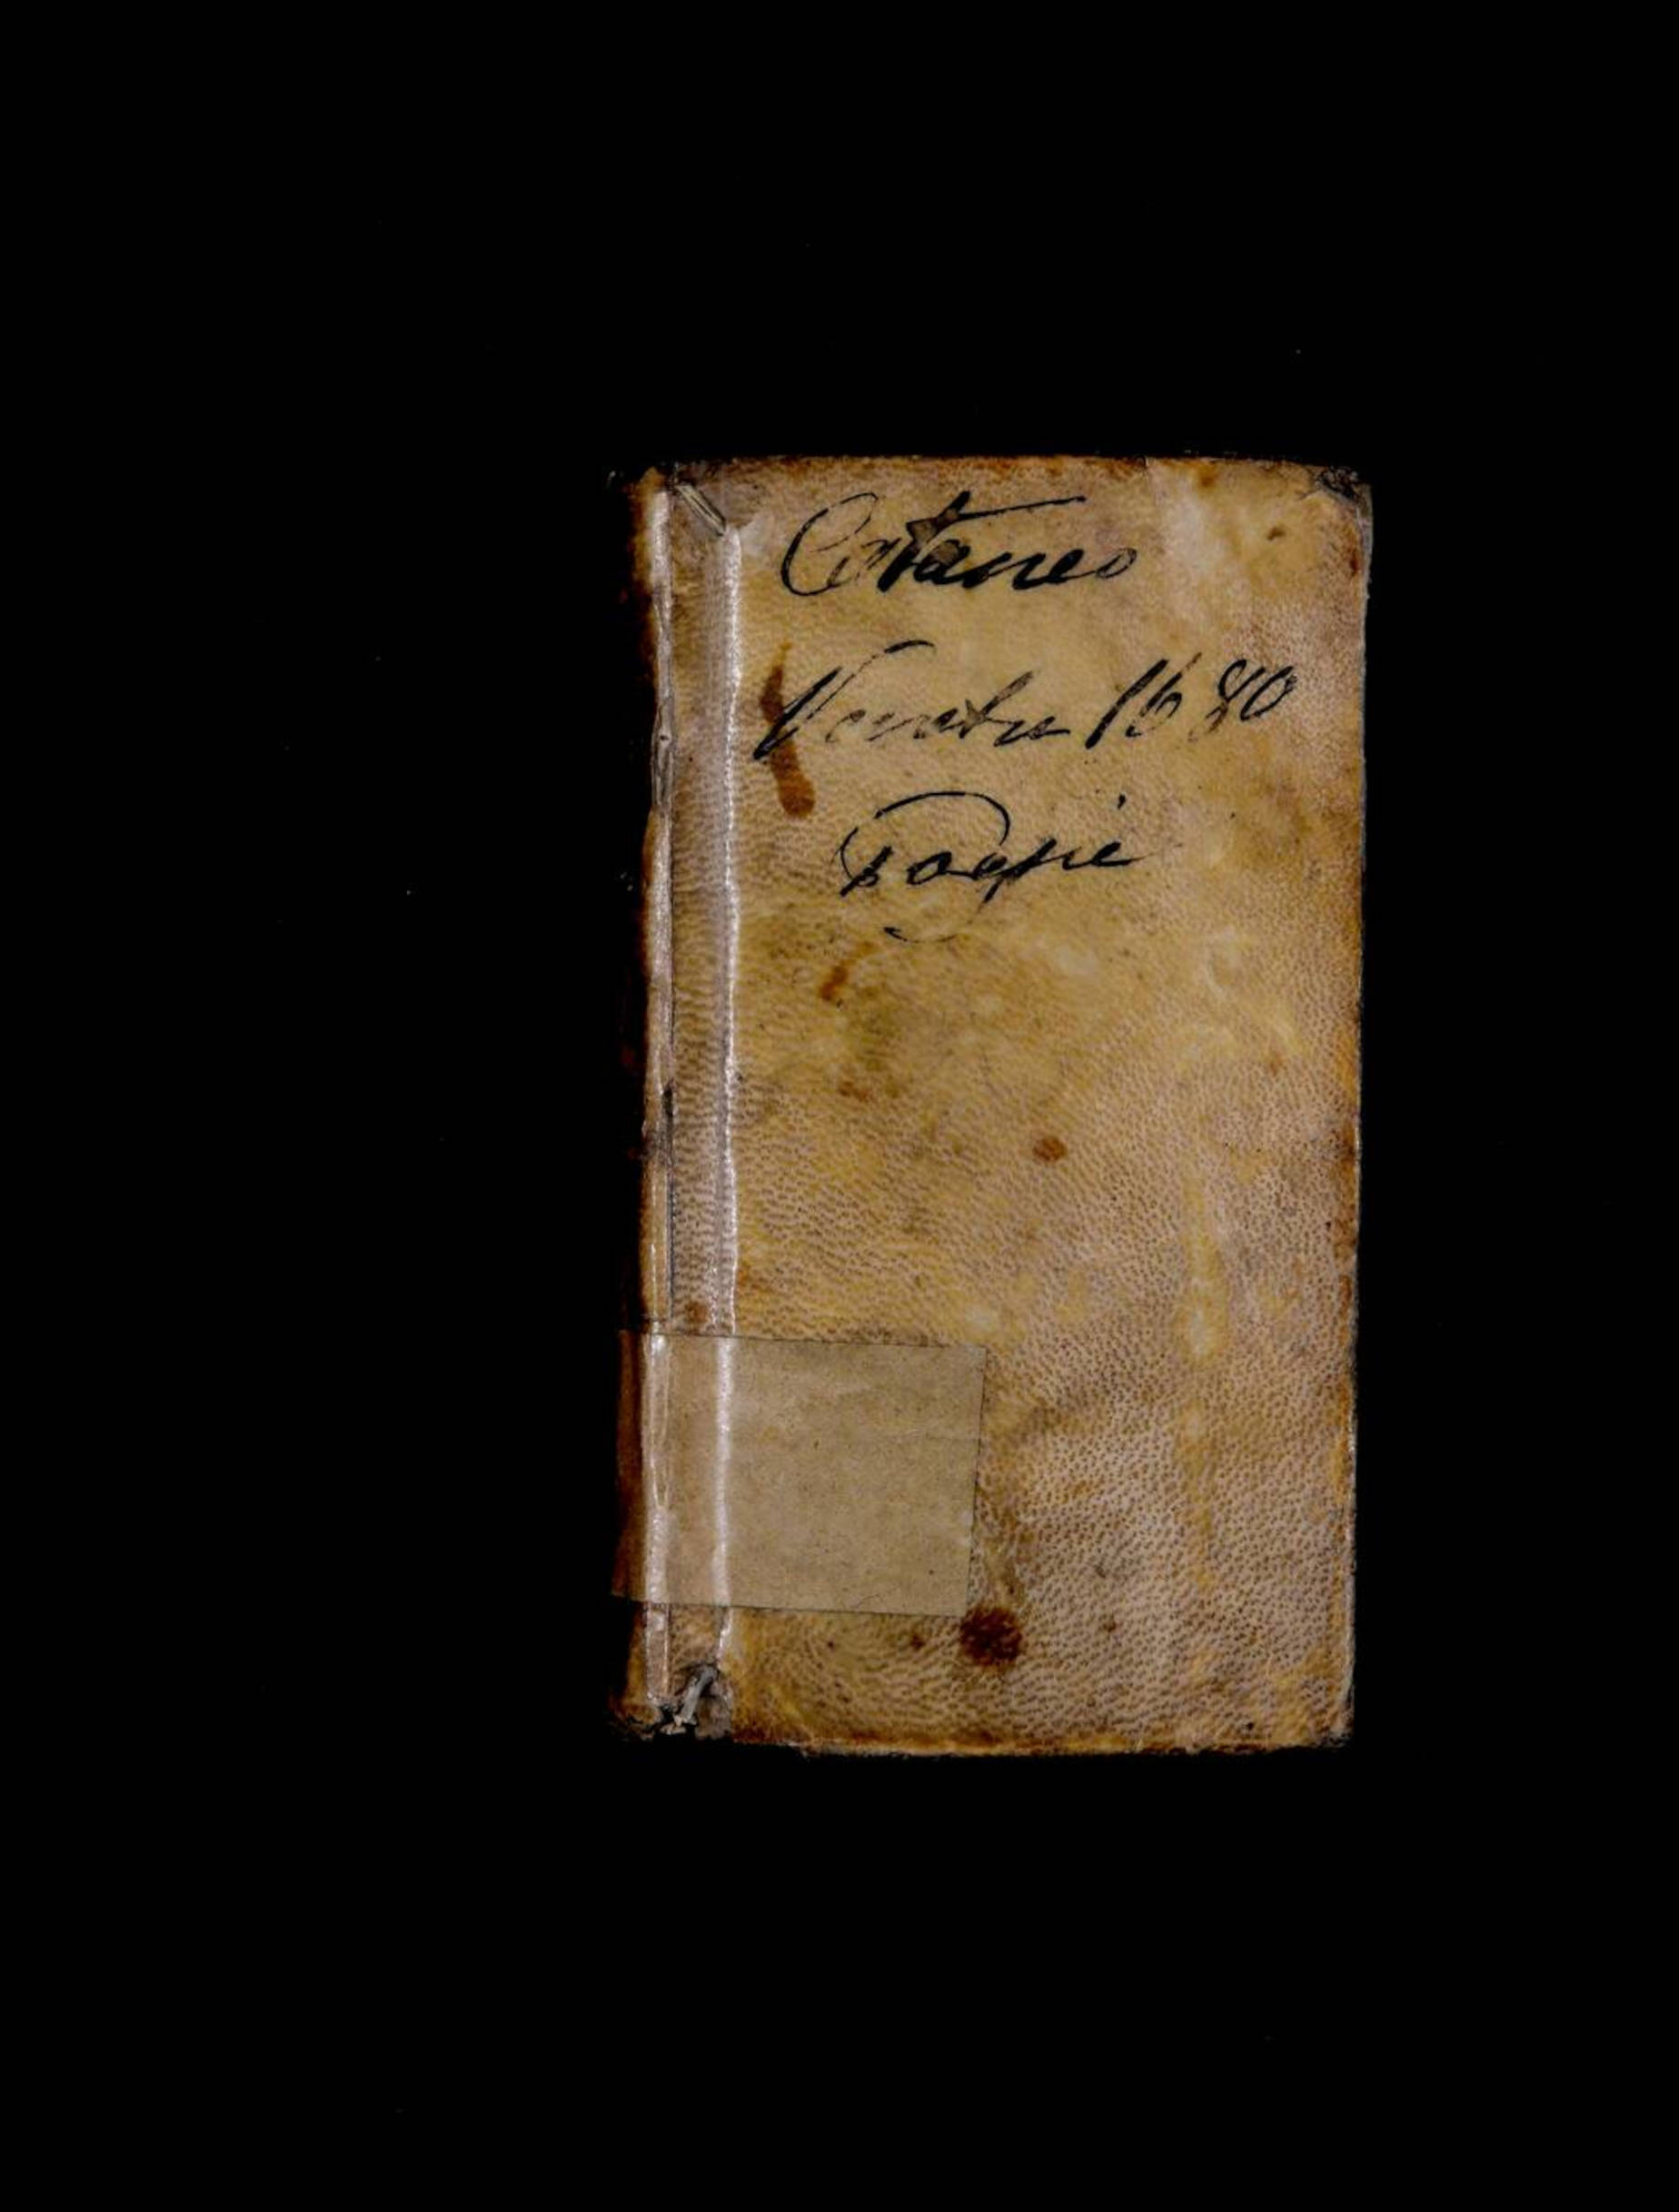 Cataneo
Venetia 1680
Poesie